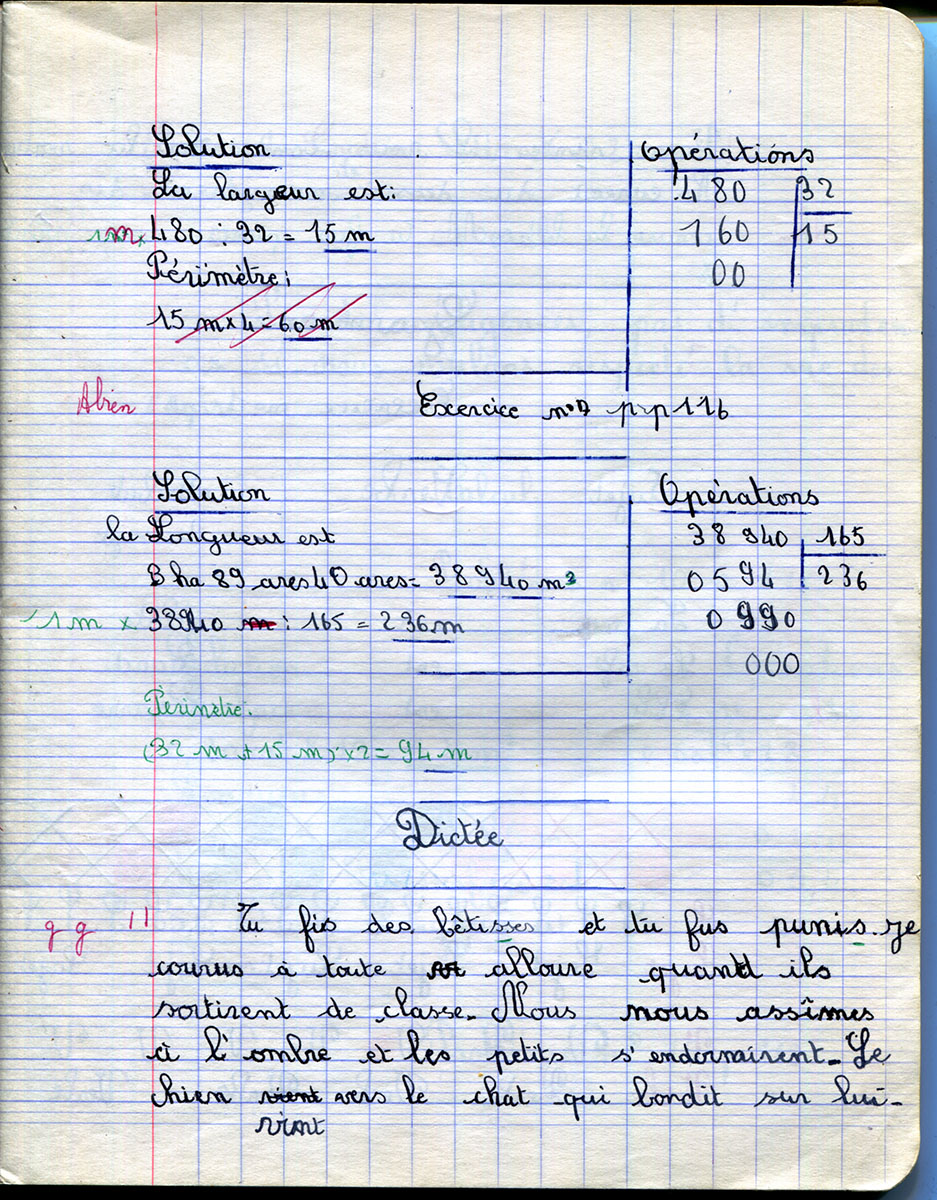 Solution
La largeur est:
1 m × 480 : 32 = 15 m
Périmètre:
15 m × 4 = 60 m
Opérations
480 32
160 15
00
A bien
Excercice n°7 p.p 116
Solution
la Longueur est
3 ha 89 ares 40 ares = 38940 m²
1 m × 38940 m : 165 = 236 m
Opérations
38 940 165
0594 236
0990
000
Périmètre.
(32 m + 15 m) × 2 = 94 m
Dictée
Tu fis des bêtisses et tu fus punis. Je
courus à toute alloure quand ils
sortirent de classe. Nous nous assîmes
à l'ombre et les petits s'endormirent. Le
chien vient vers le chat qui bondit sur lui.
vint